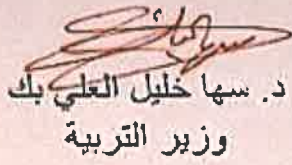 د. سها خليل العلي بك
وزير التربية